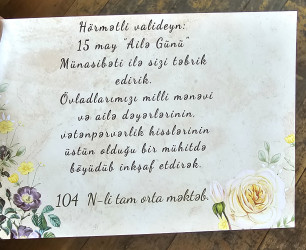 Hörmətli valideyn:
15 may "Ailə Günü"
Münasibəti ilə sizi təbrik
edirik.
Övladlarımızı milli mənəvi
və ailə dəyərlərinin,
vətənpərvərlik hisslərinin
üstün olduğu bir mühitdə
böyüdüb inkşaf etdirək.
104 N-li tam orta məktəb.